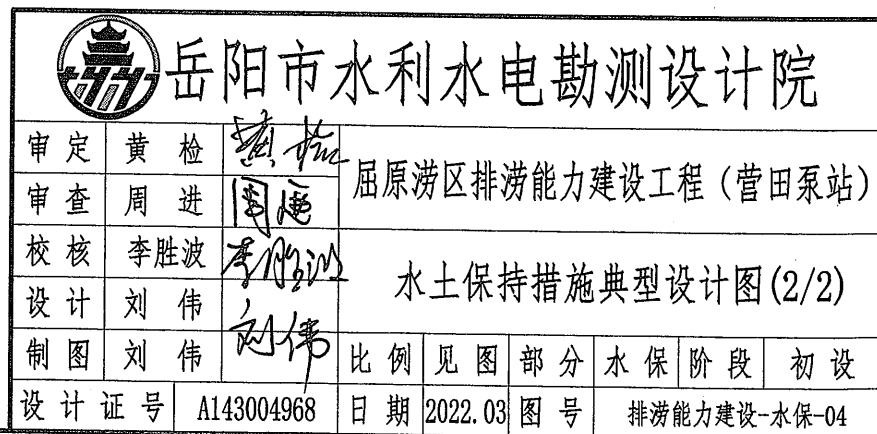 岳阳市水利水电勘测设计院
审定 黄检 黄检 屈原涝区排涝能力建设工程（营田泵站）
审查 周进 周进
校核 李胜波 李胜波 水土保持措施典型设计图(2/2)
设计 刘伟 刘伟
制图 刘伟 比例 见图 部分 水保 阶段 初设
设计证号 A143004968 日期 2022.03 图号 排涝能力建设-水保-04